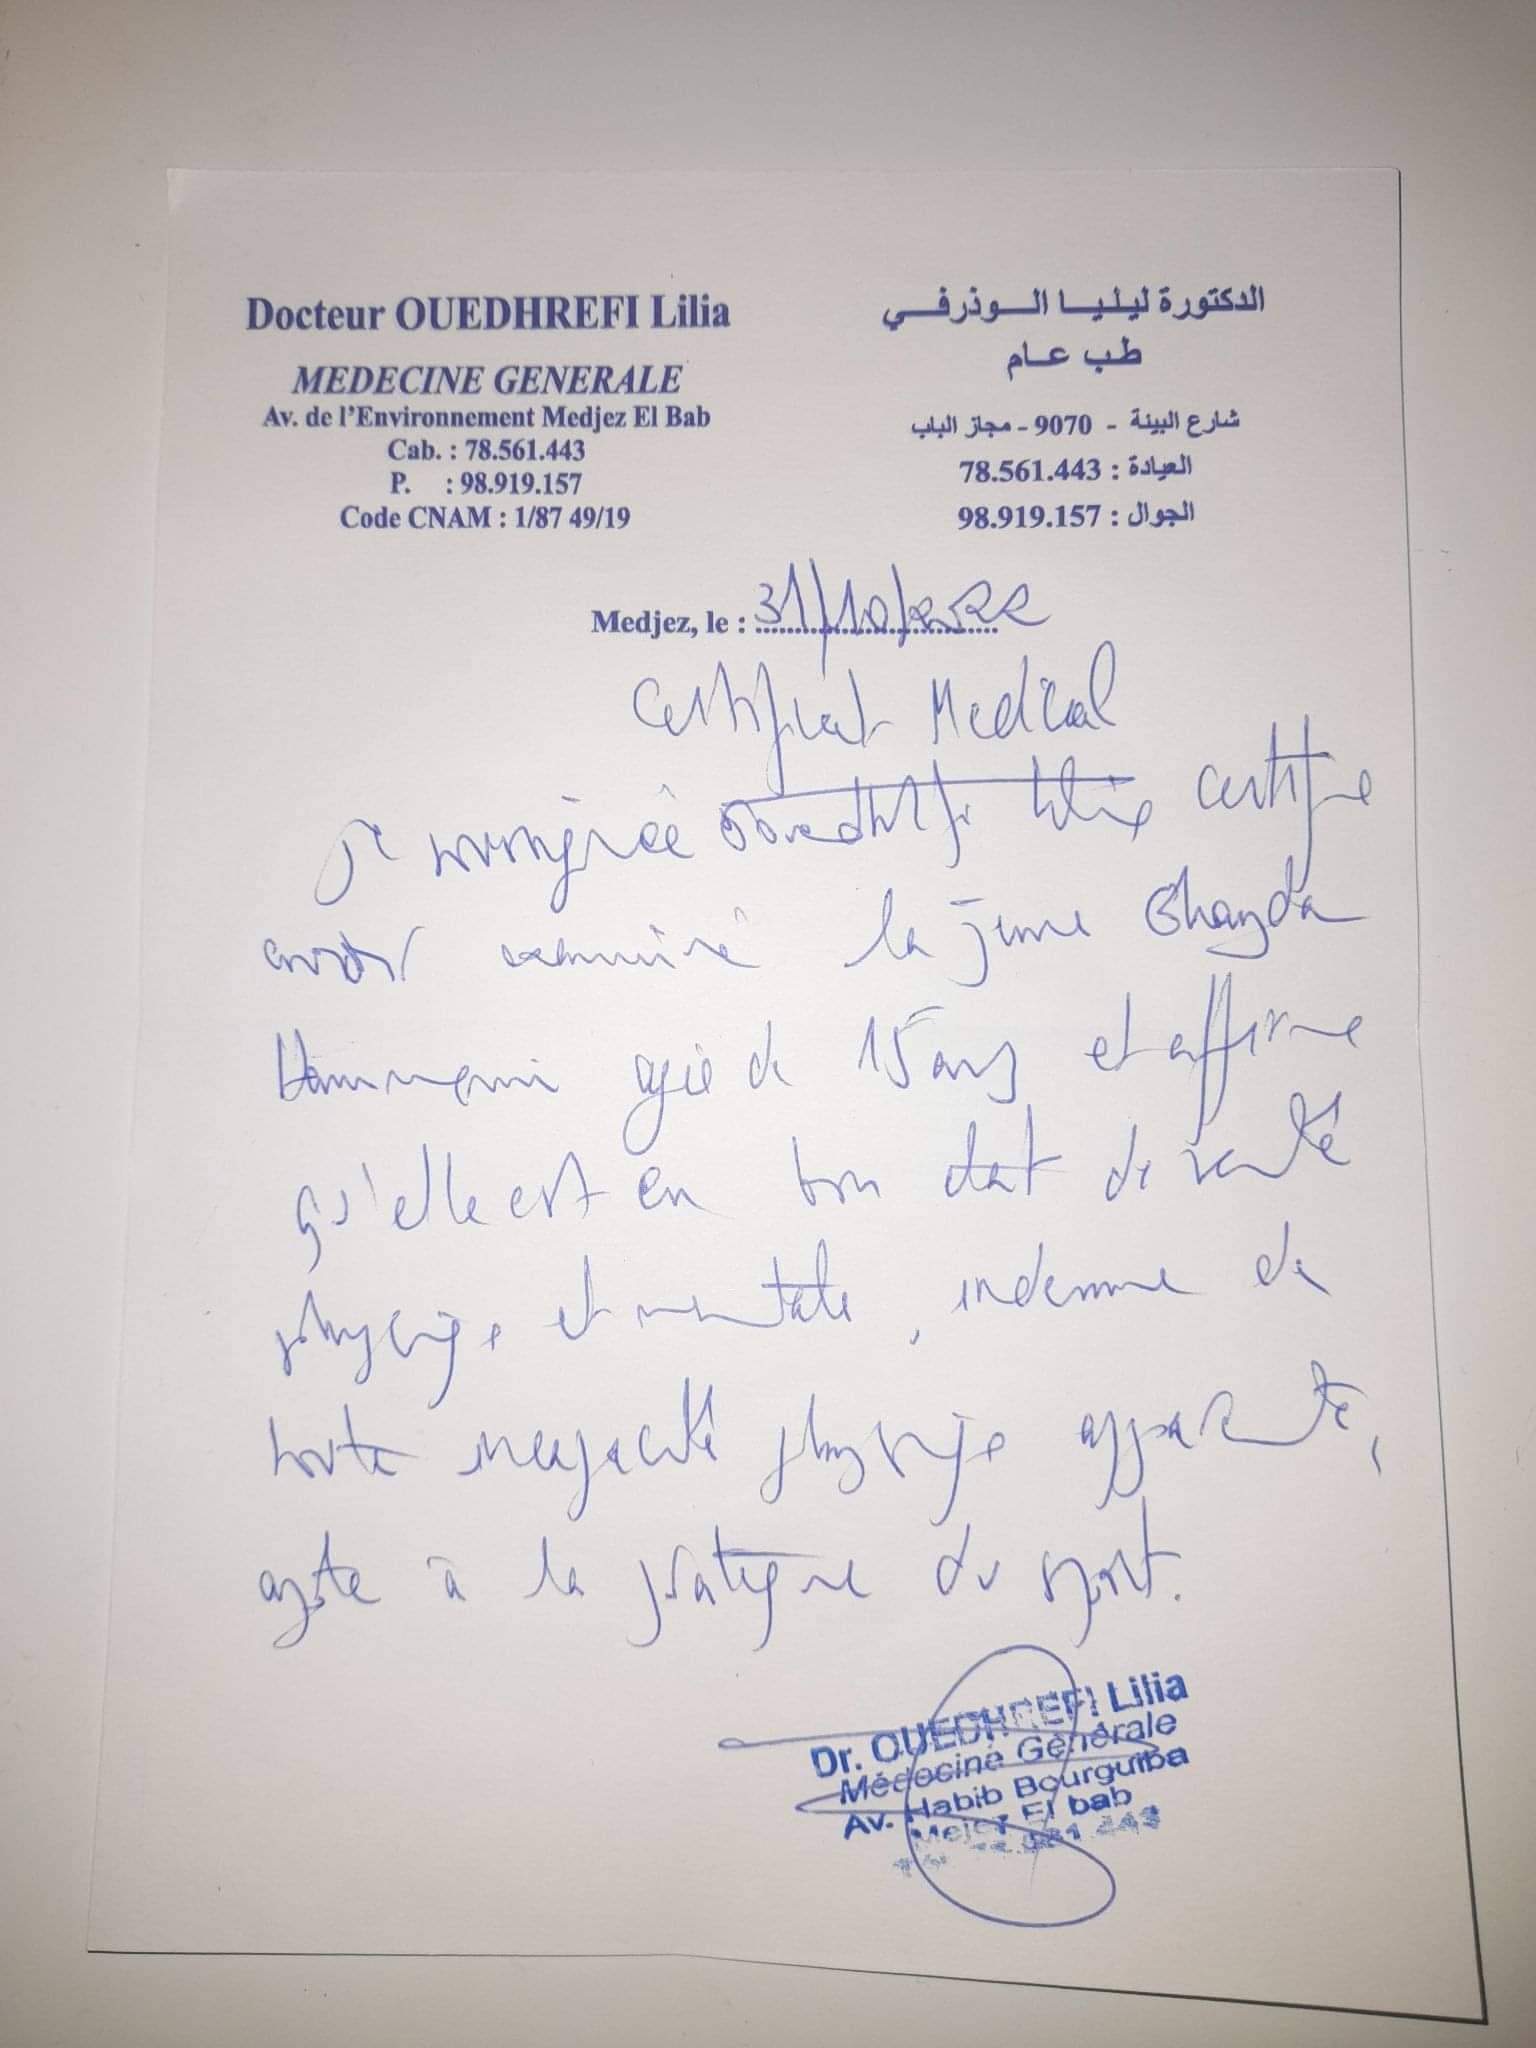 Docteur OUEDHREFI Lilia
MEDECINE GENERALE
Av. de l'Environnement Medjez El Bab
Cab. : 78.561.443
P. : 98.919.157
Code CNAM : 1/87 49/19
الدكتورة ليليا الوذرفي
طب عام
شارع البيئة - 9070 - مجاز الباب
العيادة : 78.561.443
الجوال : 98.919.157
Medjez, le : 31/10/2022
Certificat Medical
Je soussignée Ouedhrefi Lilia certifie
avoir examiné la jeune Ghayda
Hammemi agée de 15 ans et affirme
qu'elle est en bon état de santé
physique et mentale, indemne de
toute incapacité physique apparente,
apte à la pratique du sport.
Dr. OUEDHREFI Lilia
Médecine Générale
Av. Habib Bourguiba
Mejez El bab